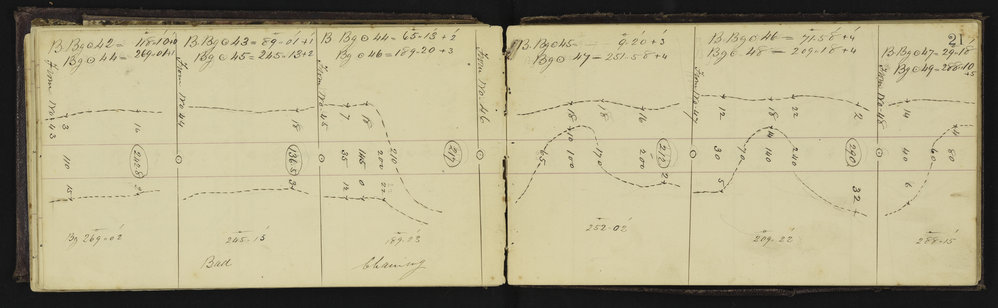 B. Bg⊙ 43 = 89-01+1
Bg⊙ 45 = 245-13+2
B Bg⊙ 44 = 65-13+2
Bg⊙ 46 = 189-20+3
B. Bg⊙ 45 = 9-20+3
Bg⊙ 47 = 251-58+4
B. Bg⊙ 46 = 71-58+4
Bg⊙ 48 = 209-18+4
21
B. Bg⊙ 47 = 29-18
Bg⊙ 49 = 288-10
+5
From No 43
From No 44
From No 45
From No 46
From No 47
From No 48
3
16
18
7
18
18
18
12
18
22
12
14
14
110
248
136.5
35
165
200
210
217
65
100
170
200
212
30
70
140
240
290
40
60
80
15
2
3
12
0
22
2
5
32
6
Bg 269-02
245-15
189-23
252-02
209-22
288-15
Bad
Chaining